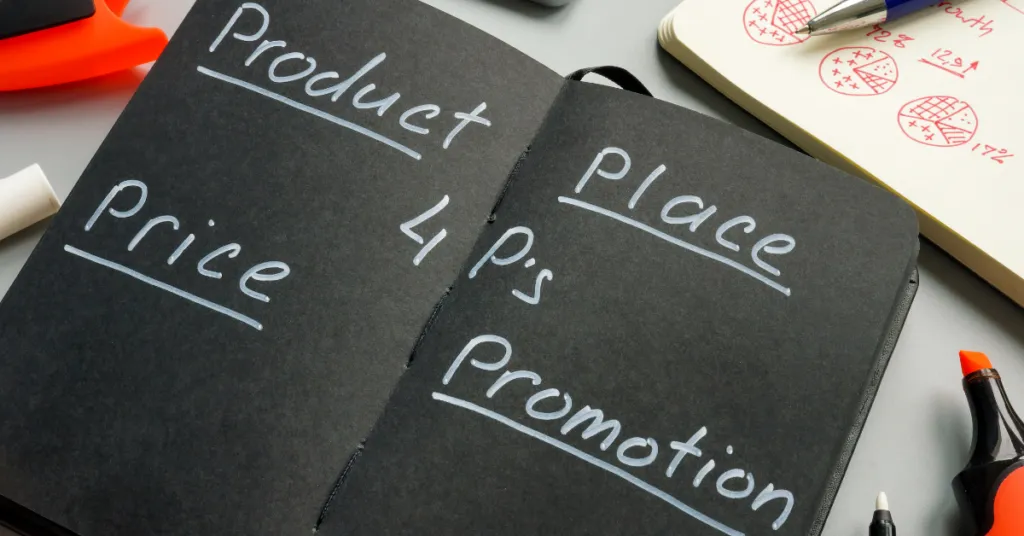 Product
Price
4 P's
Place
Promotion
12,9
17%